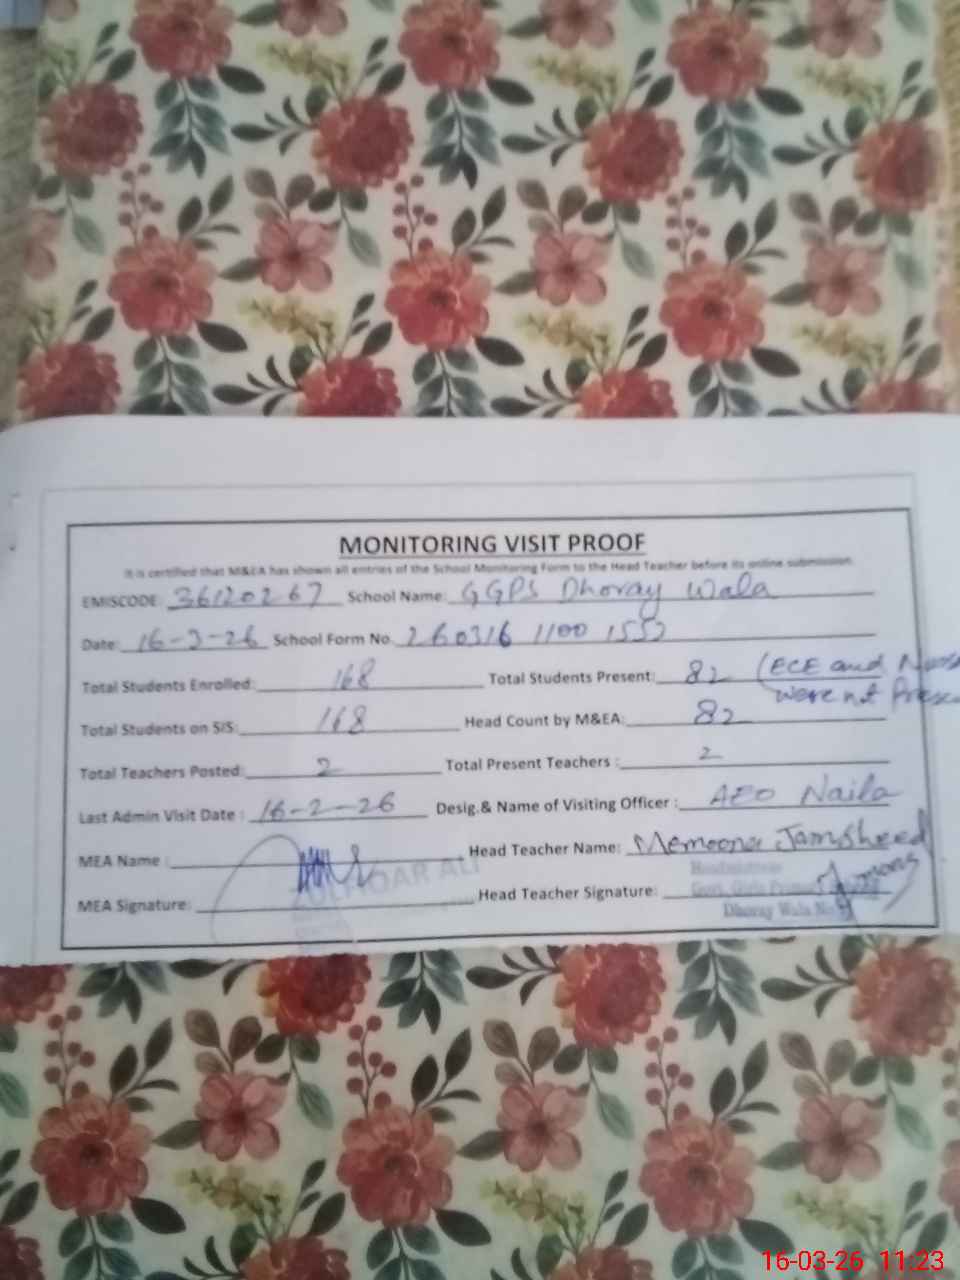 MONITORING VISIT PROOF
It is certified that M&EA has shown all entries of the School Monitoring Form to the Head Teacher before its online submission.
EMISCODE: 36120267 School Name: GGPS Dhoray Wala
Date: 16-3-26 School Form No. 260316 1100 1552
Total Students Enrolled: 168 Total Students Present: 82 (ECE and
were not
Total Students on SIS: 168 Head Count by M&EA: 82
Total Teachers Posted: 2 Total Present Teachers : 2
Last Admin Visit Date : 16-2-26 Desig.& Name of Visiting Officer : AEO Naila
MEA Name : Head Teacher Name: Memoona Jamsheed
MEA Signature: Head Teacher Signature:
Headmistress
Govt. Girls Primary
Dhoray Wala No
16-03-26 11:23